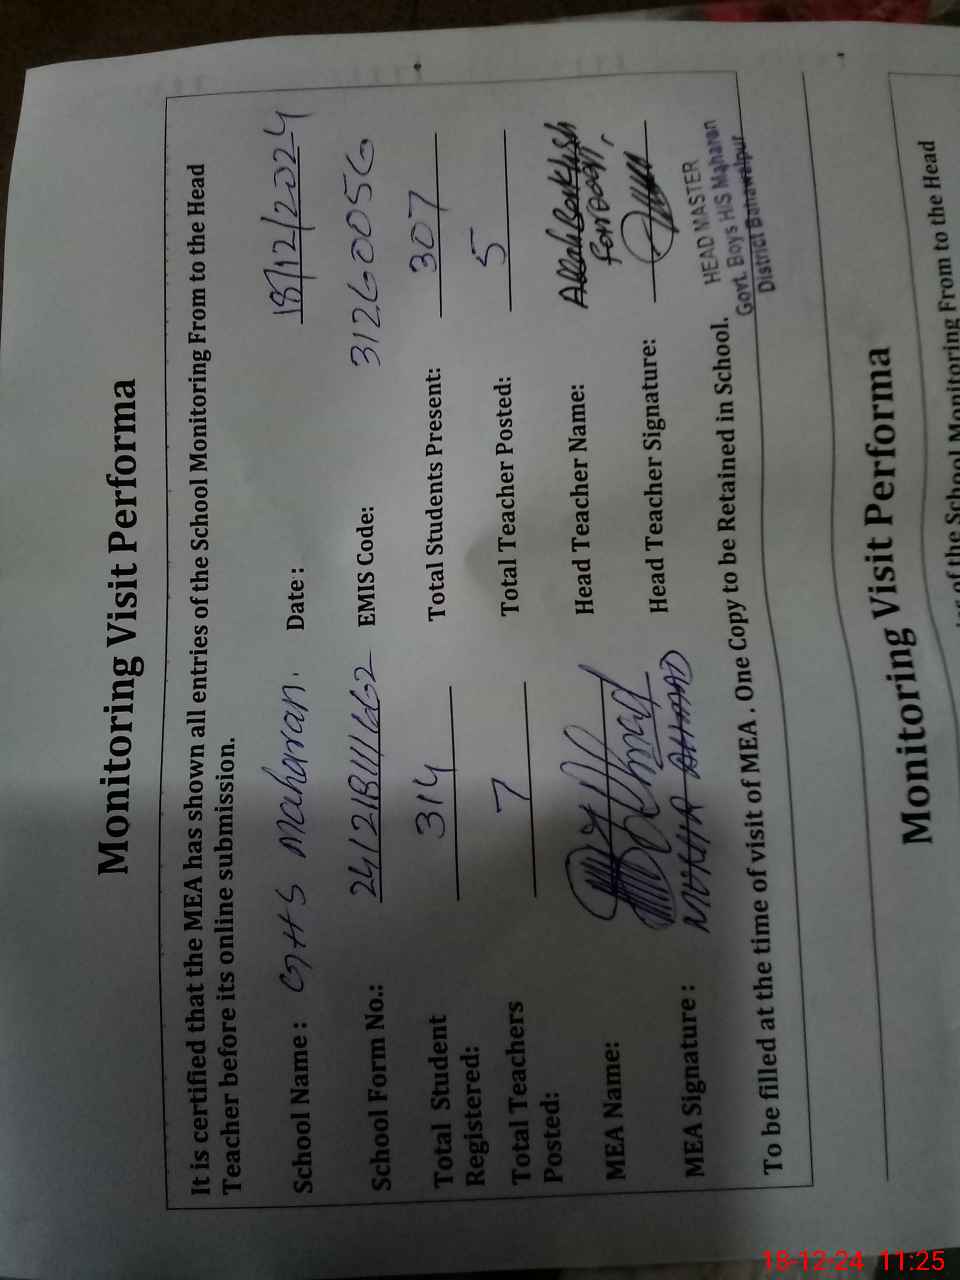 Monitoring Visit Performa
It is certified that the MEA has shown all entries of the School Monitoring From to the Head
Teacher before its online submission.
School Name : GHS Maharan. Date : 18/12/2024
School Form No.: 241218111662 EMIS Code: 31260056
Total Student Registered: 314 Total Students Present: 307
Total Teachers Posted: 7 Total Teacher Posted: 5
MEA Name: Head Teacher Name: Allah Bakhsh
MEA Signature : AHMAD Head Teacher Signature:
HEAD MASTER
Govt. Boys H/S Maharan
District Bahawalpur
To be filled at the time of visit of MEA . One Copy to be Retained in School.
Monitoring Visit Performa
of the School Monitoring From to the Head
18-12-24 11:25